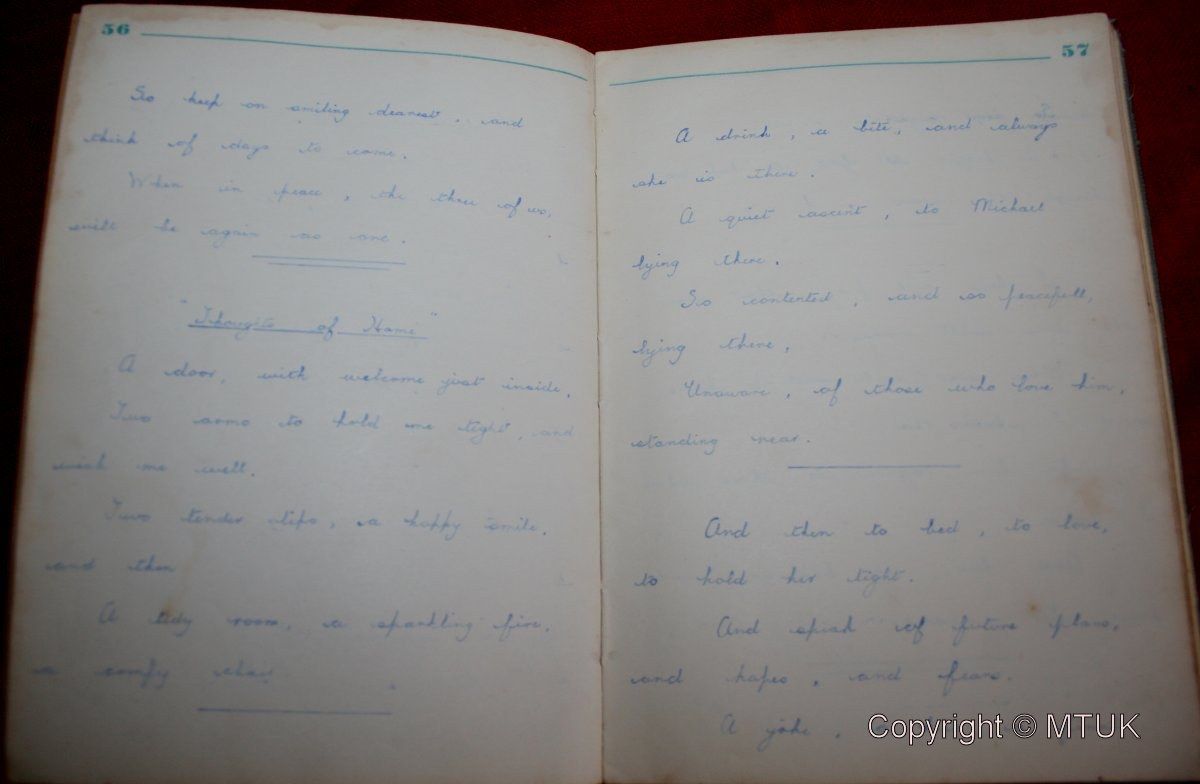 56
So keep on smiling dearest, and
think of days to come.
When in peace, the three of us,
will be again as one.
"Thoughts of Home"
A door, with welcome just inside,
Two arms to hold me tight, and
wish me well.
Two tender lips, a happy smile,
and then
A tidy room, a sparkling fire,
a comfy chair
57
A drink, a bite, and always
she is there.
A quiet ascent, to Michael
lying there.
So contented, and so peacefull,
lying there,
Unaware, of those who love him,
standing near.
And then to bed, to love,
to hold her tight.
And speak of future plans,
and hopes, and fears.
A joke,
Copyright © MTUK